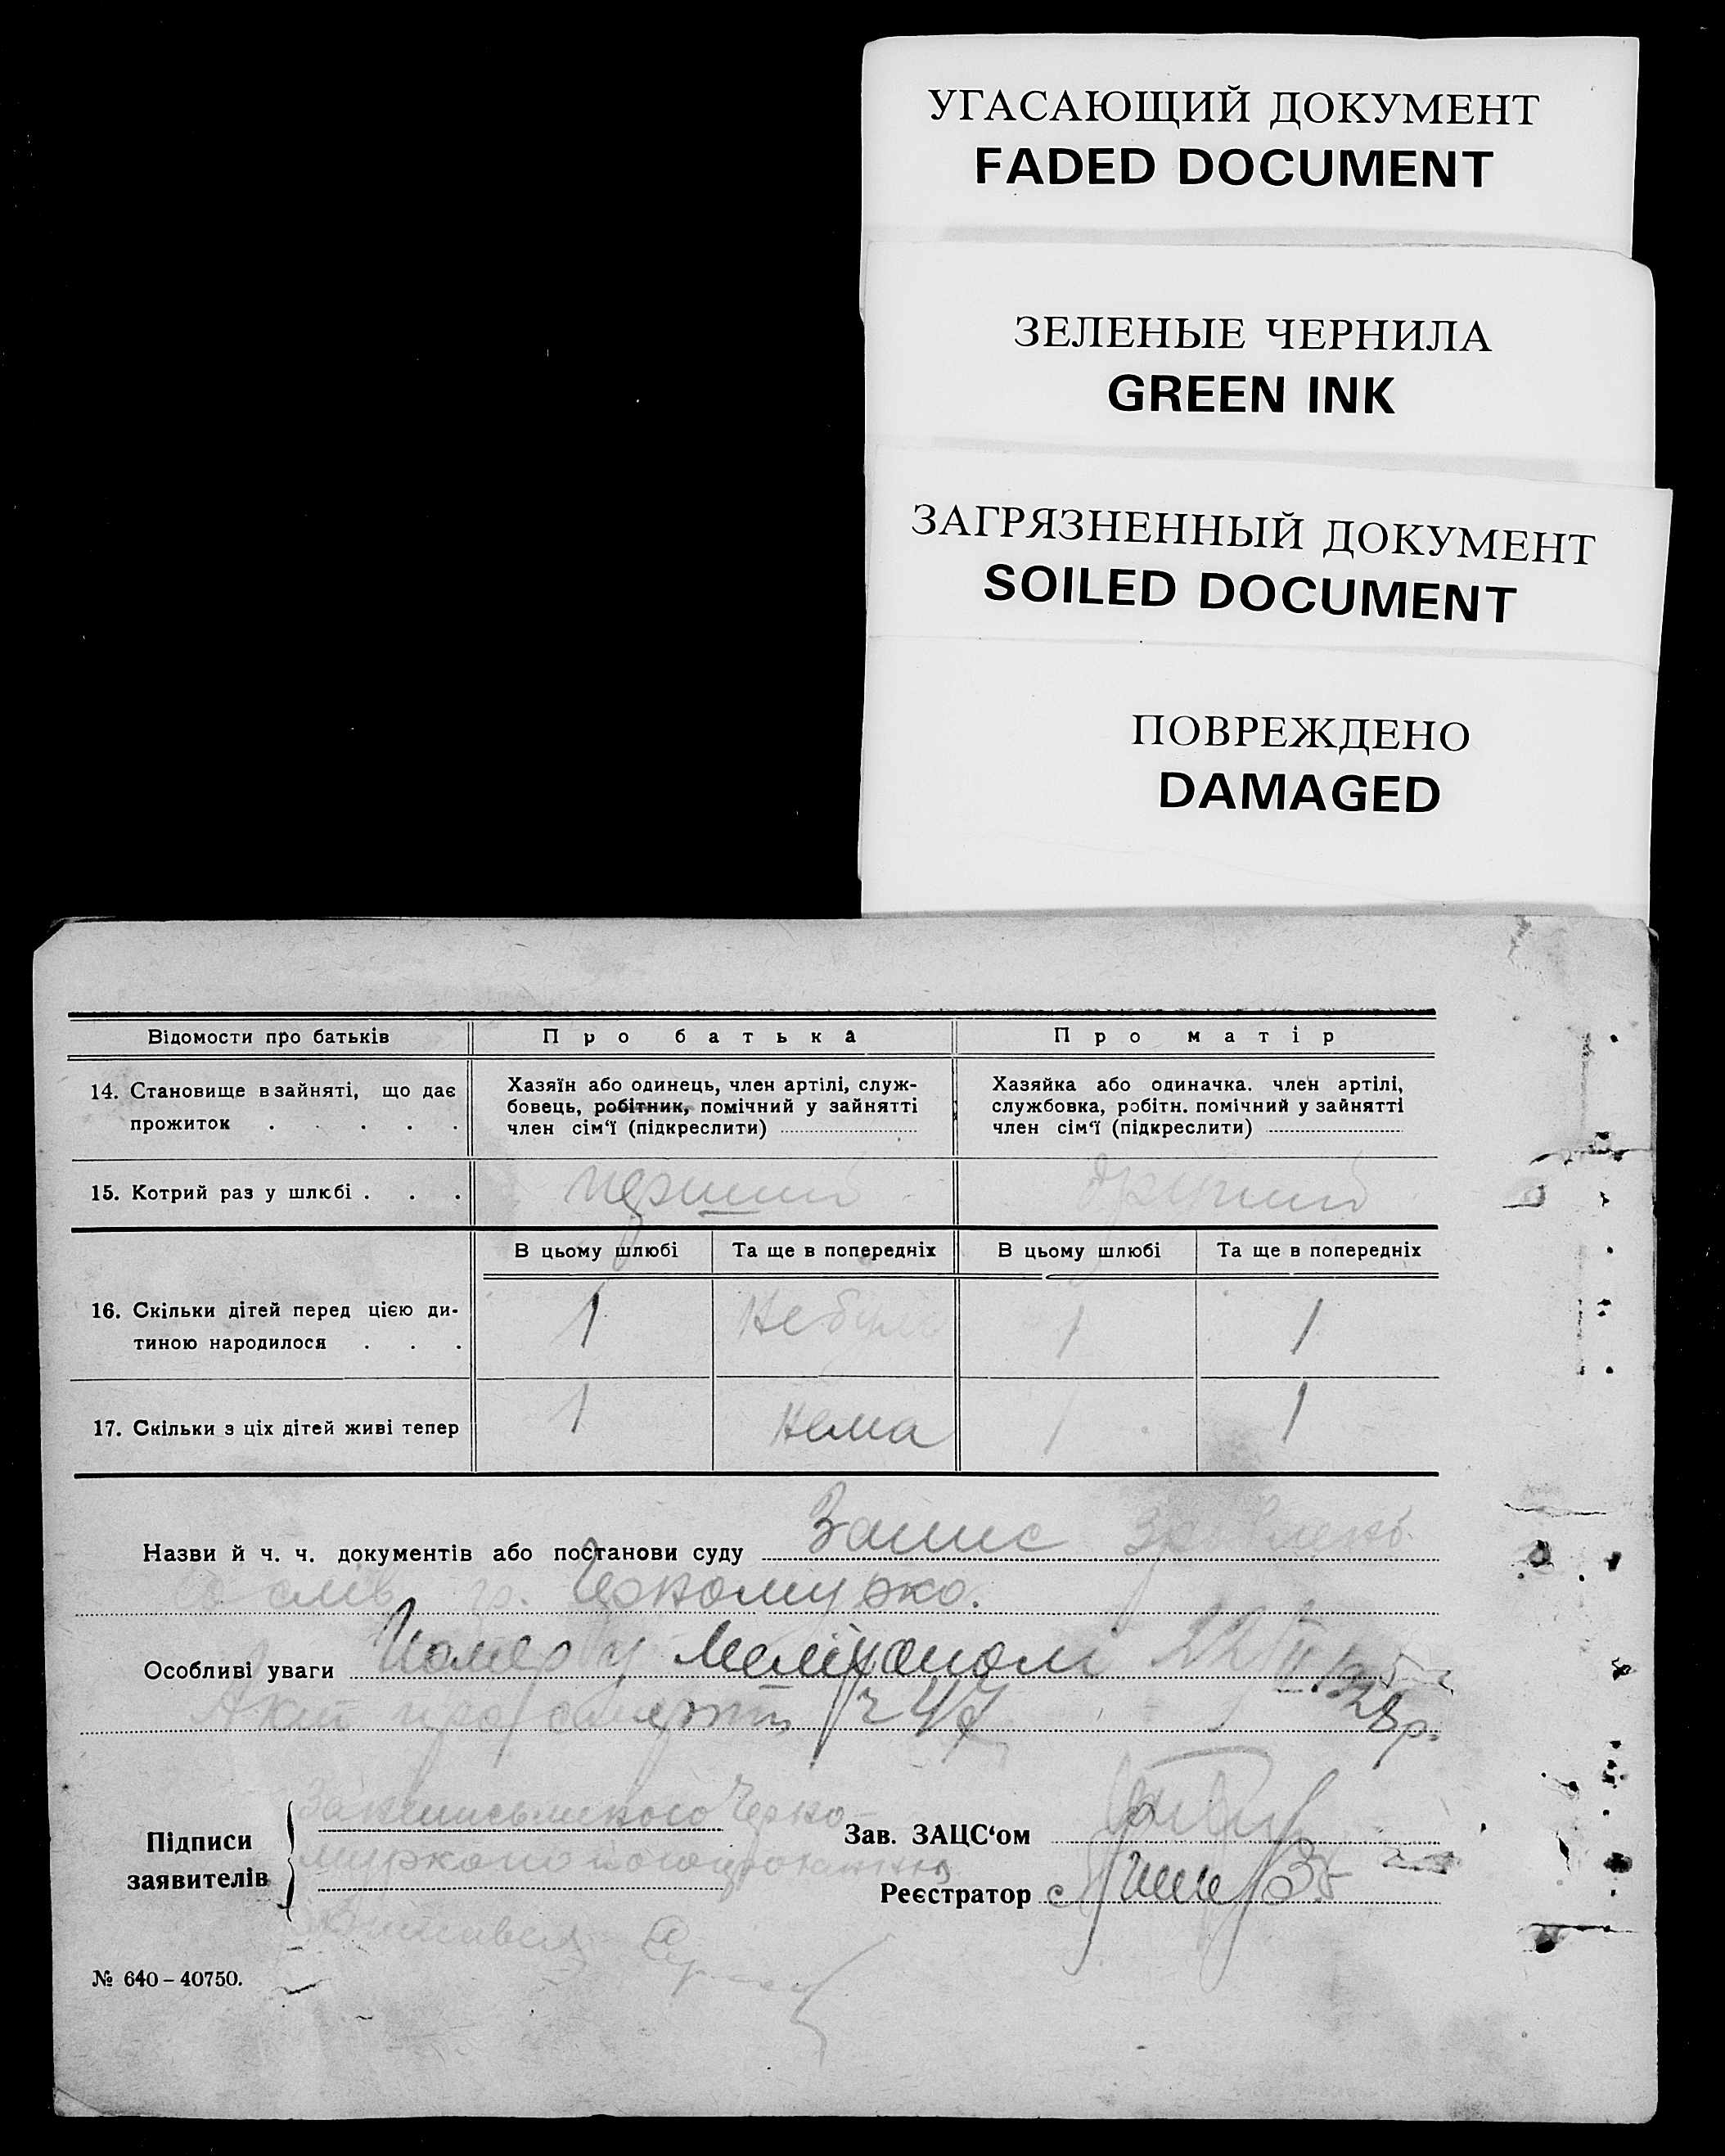 УГАСАЮЩИЙ ДОКУМЕНТ
FADED DOCUMENT
ЗЕЛЕНЫЕ ЧЕРНИЛА
GREEN INK
ЗАГРЯЗНЕННЫЙ ДОКУМЕНТ
SOILED DOCUMENT
ПОВРЕЖДЕНО
DAMAGED
Відомости про батьків Про батька Про матір
14. Становище в зайняті, що дає прожиток . . . . .
Хазяїн або одинець, член артілі, служ-
бовець, робітник, помічний у зайнятті
член сім‘ї (підкреслити)
Хазяйка або одиначка. член артілі,
службовка, робітн. помічний у зайнятті
член сім‘ї (підкреслити)
15. Котрий раз у шлюбі . . . перший другий
В цьому шлюбі Та ще в попередніх В цьому шлюбі Та ще в попередніх
16. Скільки дітей перед цією ди-
тиною народилося . . . 1 Не було 1 1
17. Скільки з ціх дітей живі тепер 1 Нема 1 1
Назви й ч. ч. документів або постанови суду Запис
зі слів гр. Чорномурко.
Особливі уваги Помер у Мелітополі 22/II
Акт про смерть 28р.
Підписи
заявителів
Зав. ЗАЦС‘ом
Реєстратор
№ 640-40750.